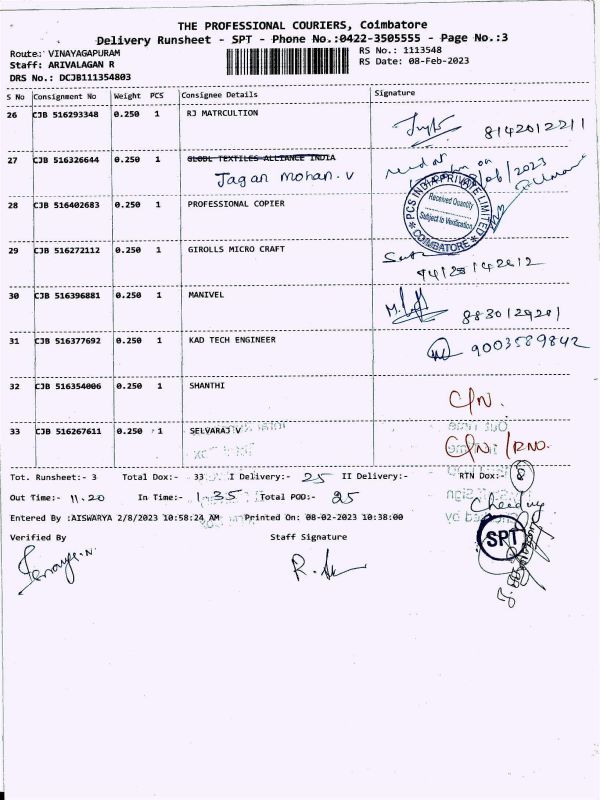 THE PROFESSIONAL COURIERS, Coimbatore
Delivery Runsheet - SPT - Phone No.:0422-3505555 - Page No.:3
Route: VINAYAGAPURAM
RS No.: 1113548
Staff: ARIVALAGAN R
RS Date: 08-Feb-2023
DRS No.: DCJB111354803
S No Consignment No Weight PCS Consignee Details Signature
26 CJB 516293348 0.250 1 RJ MATRCULTION
8142012211
27 CJB 516326644 0.250 1 GLOBL TEXTILES ALLIANCE INDIA
Jagan mohan. V
28 CJB 516402683 0.250 1 PROFESSIONAL COPIER
PCS INDIA PRIVATE LIMITED
Received Quantity
Subject to Verification
COIMBATORE
29 CJB 516272112 0.250 1 GIROLLS MICRO CRAFT
30 CJB 516396881 0.250 1 MANIVEL
8830129201
31 CJB 516377692 0.250 1 KAD TECH ENGINEER
9003589842
32 CJB 516354006 0.250 1 SHANTHI
C/N.
33 CJB 516267611 0.250 1 SELVARAJ V
C/N. / RNO.
Tot. Runsheet:- 3 Total Dox:- 33 I Delivery:- 25 II Delivery:- RTN Dox:- 8
Out Time:- 11.20 In Time:- 1.35 Total POD:- 25
Entered By :AISWARYA 2/8/2023 10:58:24 AM Printed On: 08-02-2023 10:38:00
Verified By Staff Signature
SPT